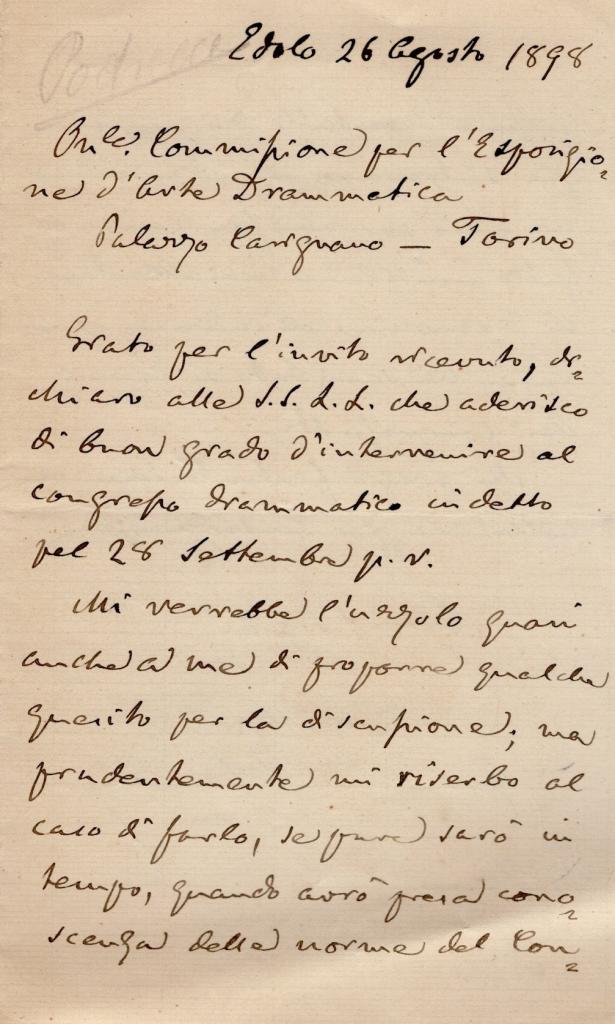 Edolo 26 Agosto 1898
Onle. Commissione per l'Esposizio=
ne d'Arte Drammatica
Palazzo Carignano — Torino
Grato per l'invito ricevuto, di=
chiaro alle S.S. L.L. che aderisco
di buon grado d'intervenire al
congresso drammatico indetto
pel 28 Settembre p. v.
Mi verrebbe l'uzzolo quasi
anche a me di proporre qualche
quesito per la discussione; ma
prudentemente mi riserbo al
caso di farlo, se pure sarò in
tempo, quando avrò presa cono=
scenza delle norme del Con=